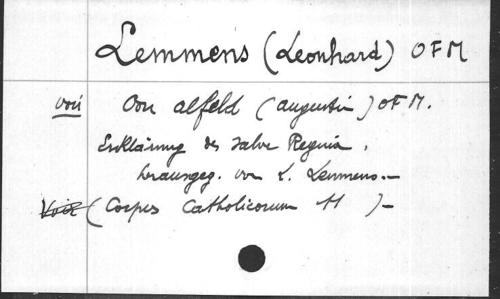 Lemmens (Leonhard) OFM
voir Von Alfeld (Augustin) OFM.
Erklärung des Salve Regina,
herausgeg. von L. Lemmens.—
Voir (Corpus Catholicorum 11)—